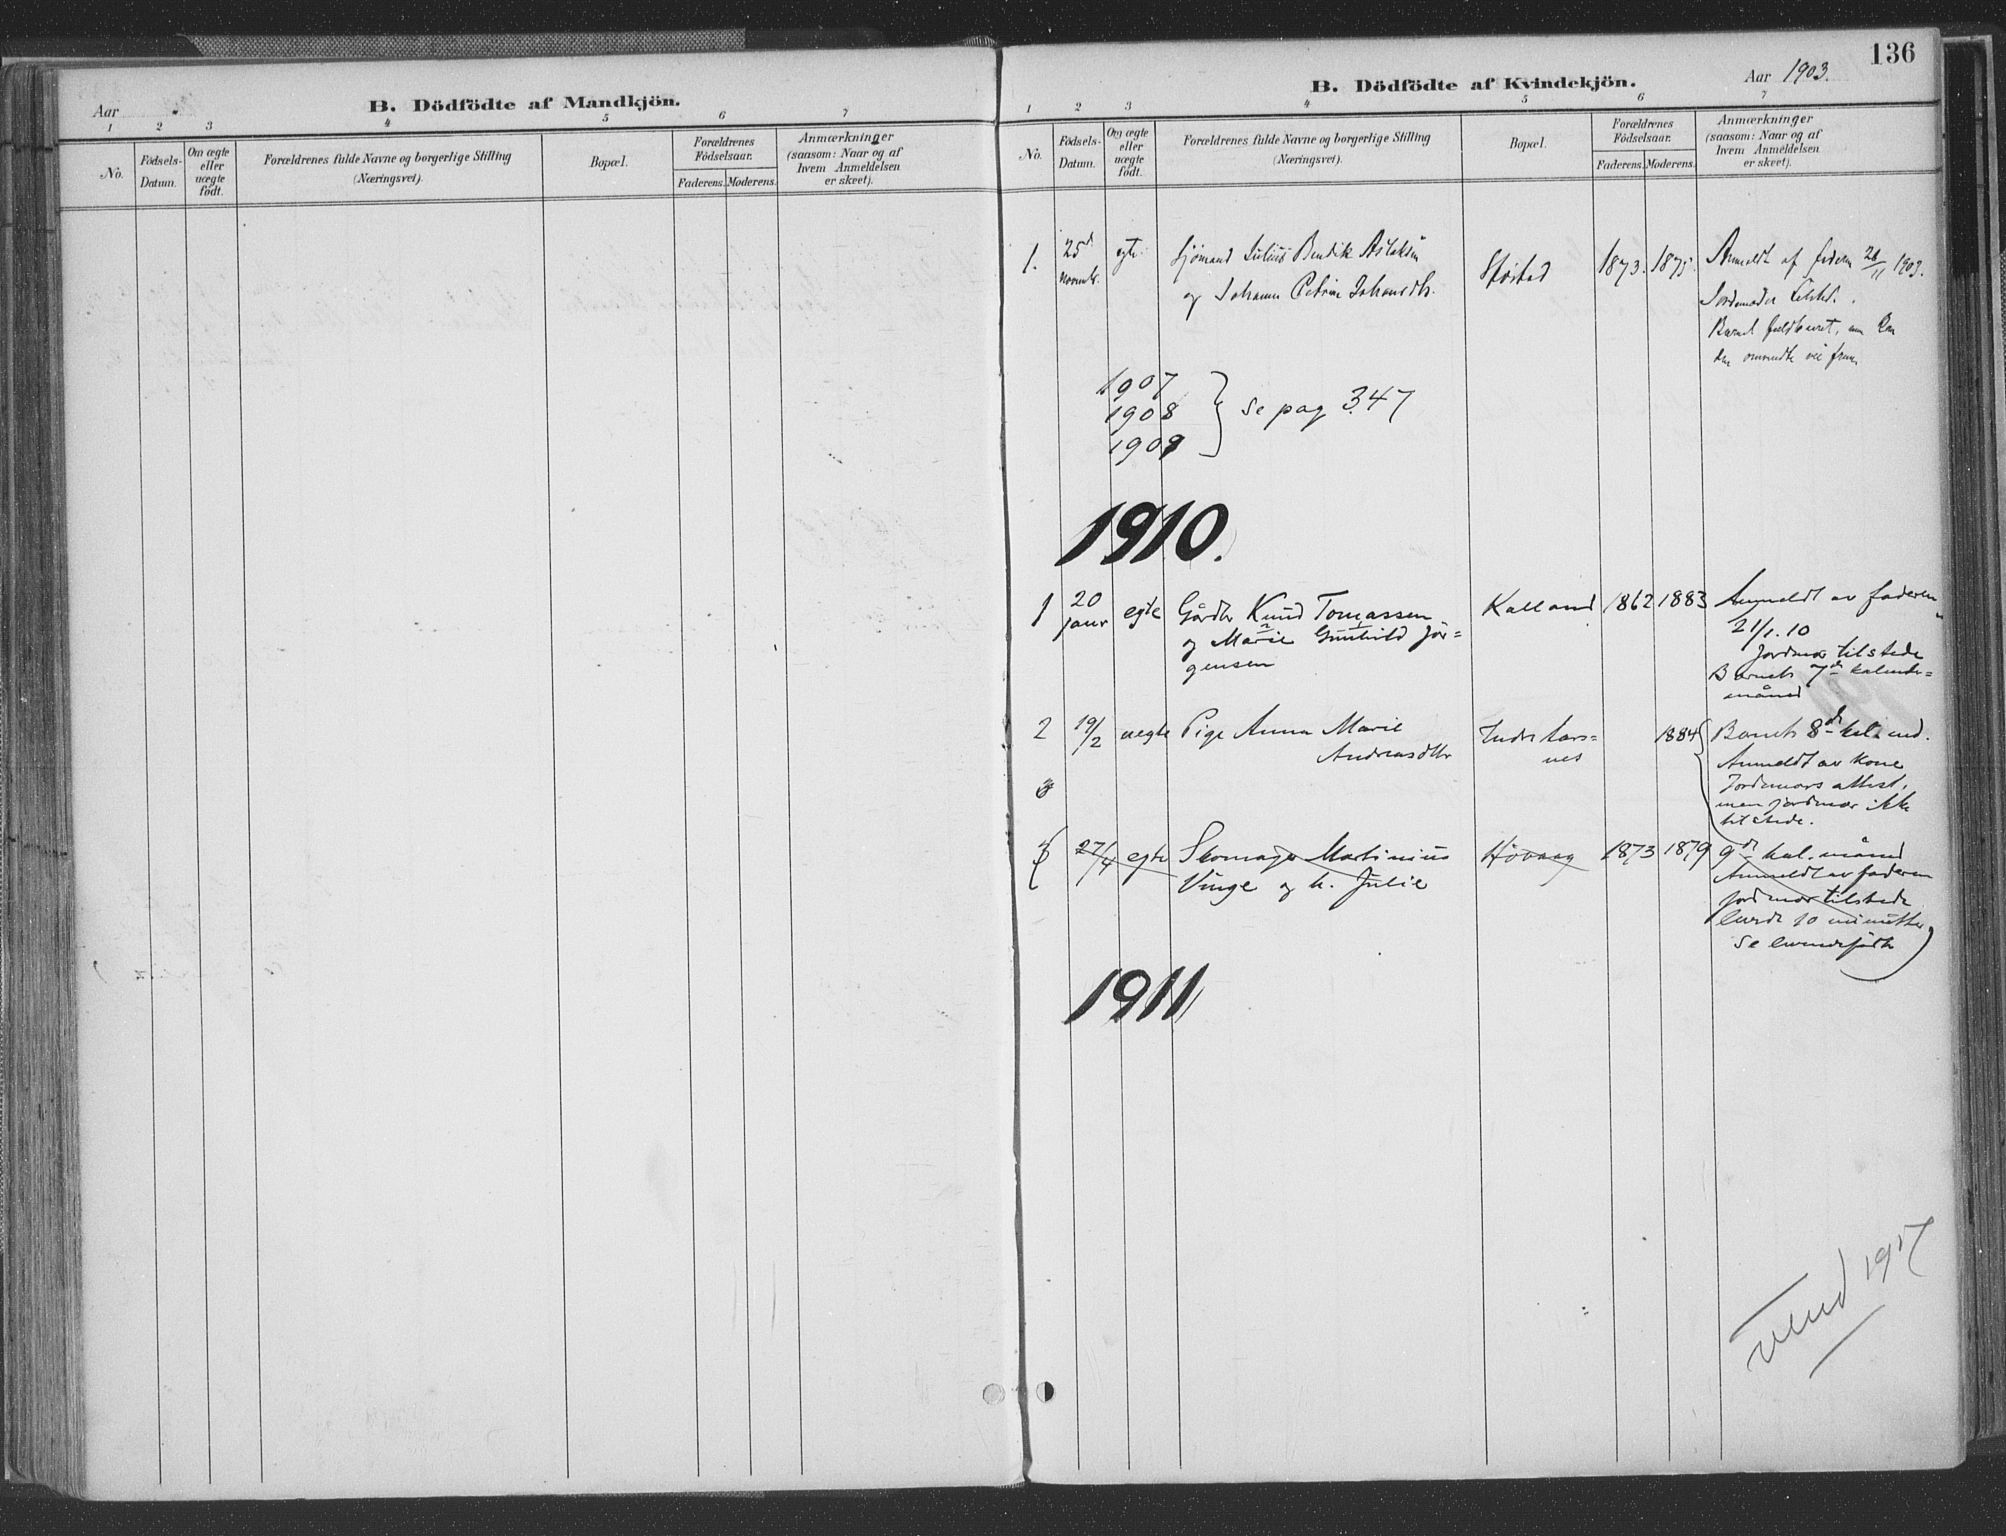 Aar
B. Dödfödte af Mandkjön.
1 2 3 4 5 6 7
No.
Födsels-
Datum.
Om ægte
eller
uægte
födt.
Forældrenes fulde Navne og borgerlige Stilling
(Næringsvei).
Bopæl.
Forældrenes
Födselsaar.
Faderens. Moderens.
Anmærkninger
(saasom: Naar og af
hvem Anmeldelsen
er skeet).
136
B. Dödfödte af Kvindekjön.
Aar 1903.
1 2 3 4 5 6 7
No.
Födsels-
Datum.
Om ægte
eller
uægte
födt.
Forældrenes fulde Navne og borgerlige Stilling
(Næringsvei).
Bopæl.
Forældrenes
Födselsaar.
Faderens. Moderens.
Anmærkninger
(saasom: Naar og af
hvem Anmeldelsen
er skeet).
1. 25d egte Sjömand Julius Bendik Aslaksen 1873. 1875. Anmeldt af faderen 1903.
novmb. og Johanne Petrine Johansdtr.
Jordemoder tilsted.
Barnet fuldbaaret,
1907
1908 se pag 347
1909
1910.
1 20 egte Gårdbr Knud Tomassen Kalland 1862 1883 Anmeldt av faderen
januar og Marie Gunhild Jör=
gensen
21/1.10
Jordmor tilstede
Barnets 7de kalender=
måned
2 19/2 uegte Pige Anna Marie
Andreasdtr
Indre Aars=
nes
1884 Barnets 8de kal. md.
Anmeldt av kone
Jordemors attest,
men jordmor ikke
tilstede.
3
3 27/4 egte Skomager Martinius
Vinge og h. Julie
Hövaag 1873 1879 9de kal. måned
Anmeldt av faderen
jordmor tilstede
levde 10 minutter
se levendefödte
1911
vend 1917